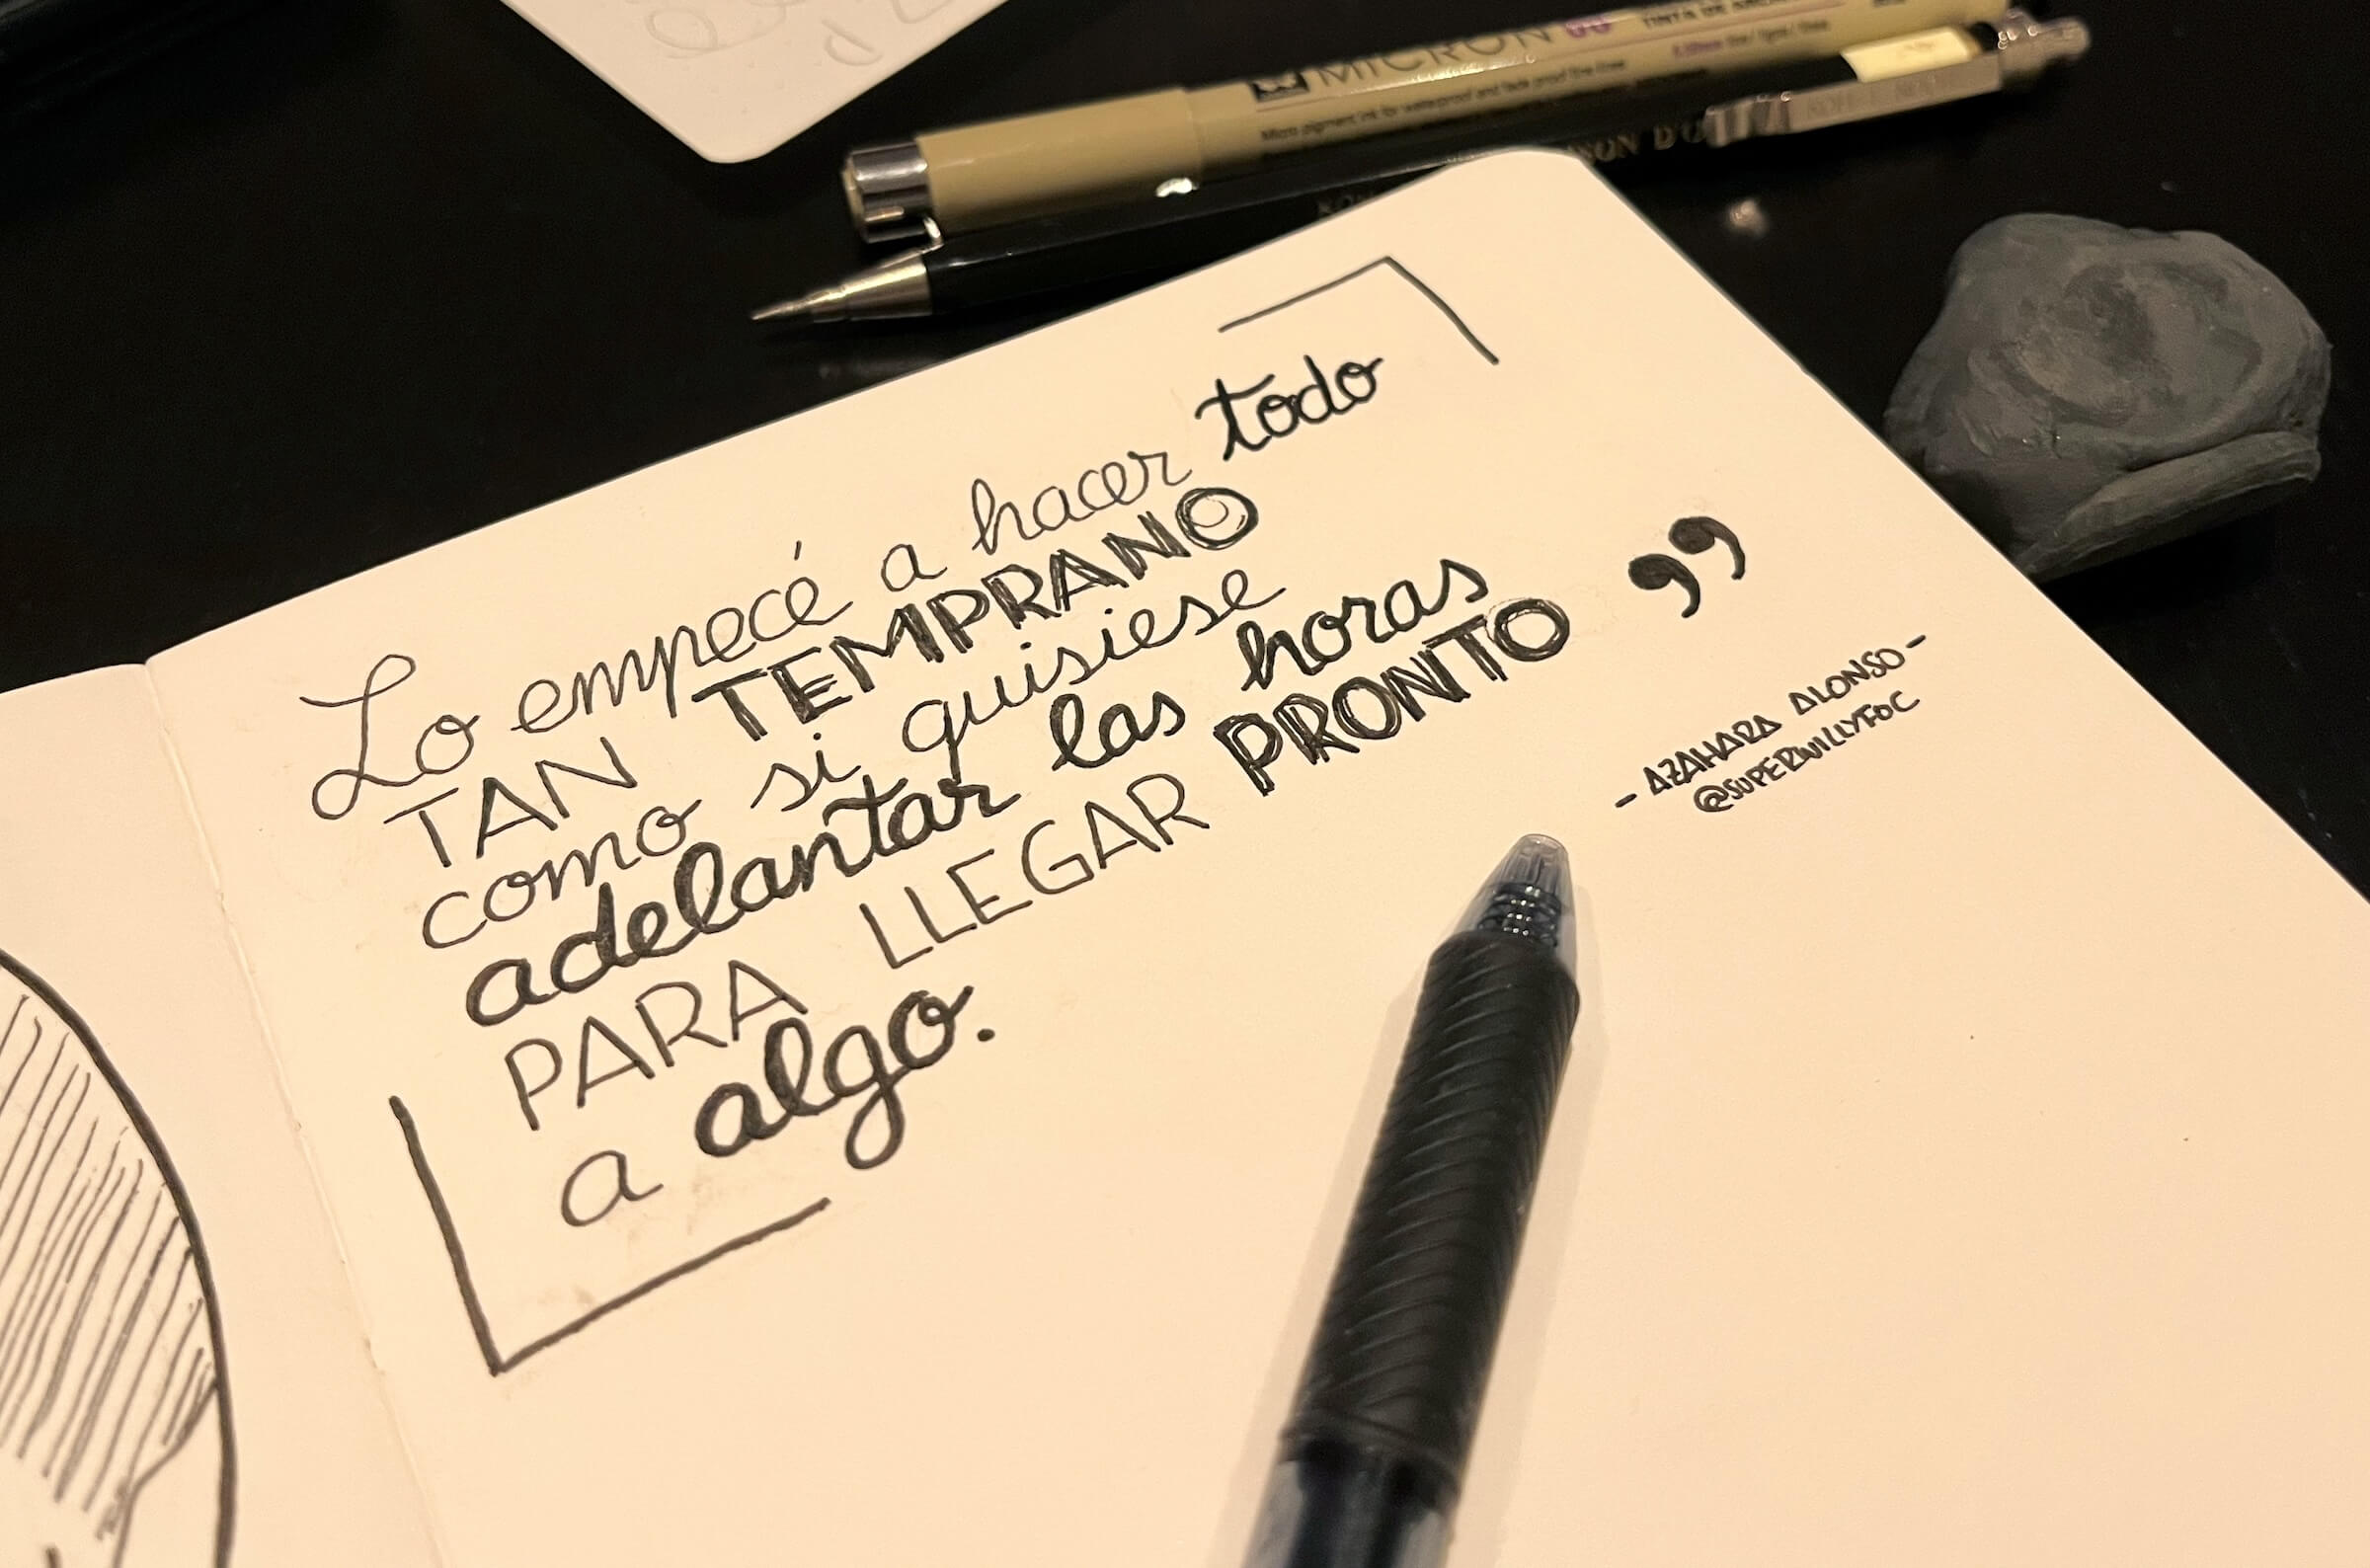 MICRON 005
TINTA DE
Micro pigment ink for waterproof and fade proof fine lines
KOH-I-NOOR
Lo empecé a hacer todo
TAN TEMPRANO
como si quisiese
adelantar las horas
PARA LLEGAR PRONTO
a algo.
”
- AZAHARA ALONSO -
@SUPERWILLYFOC